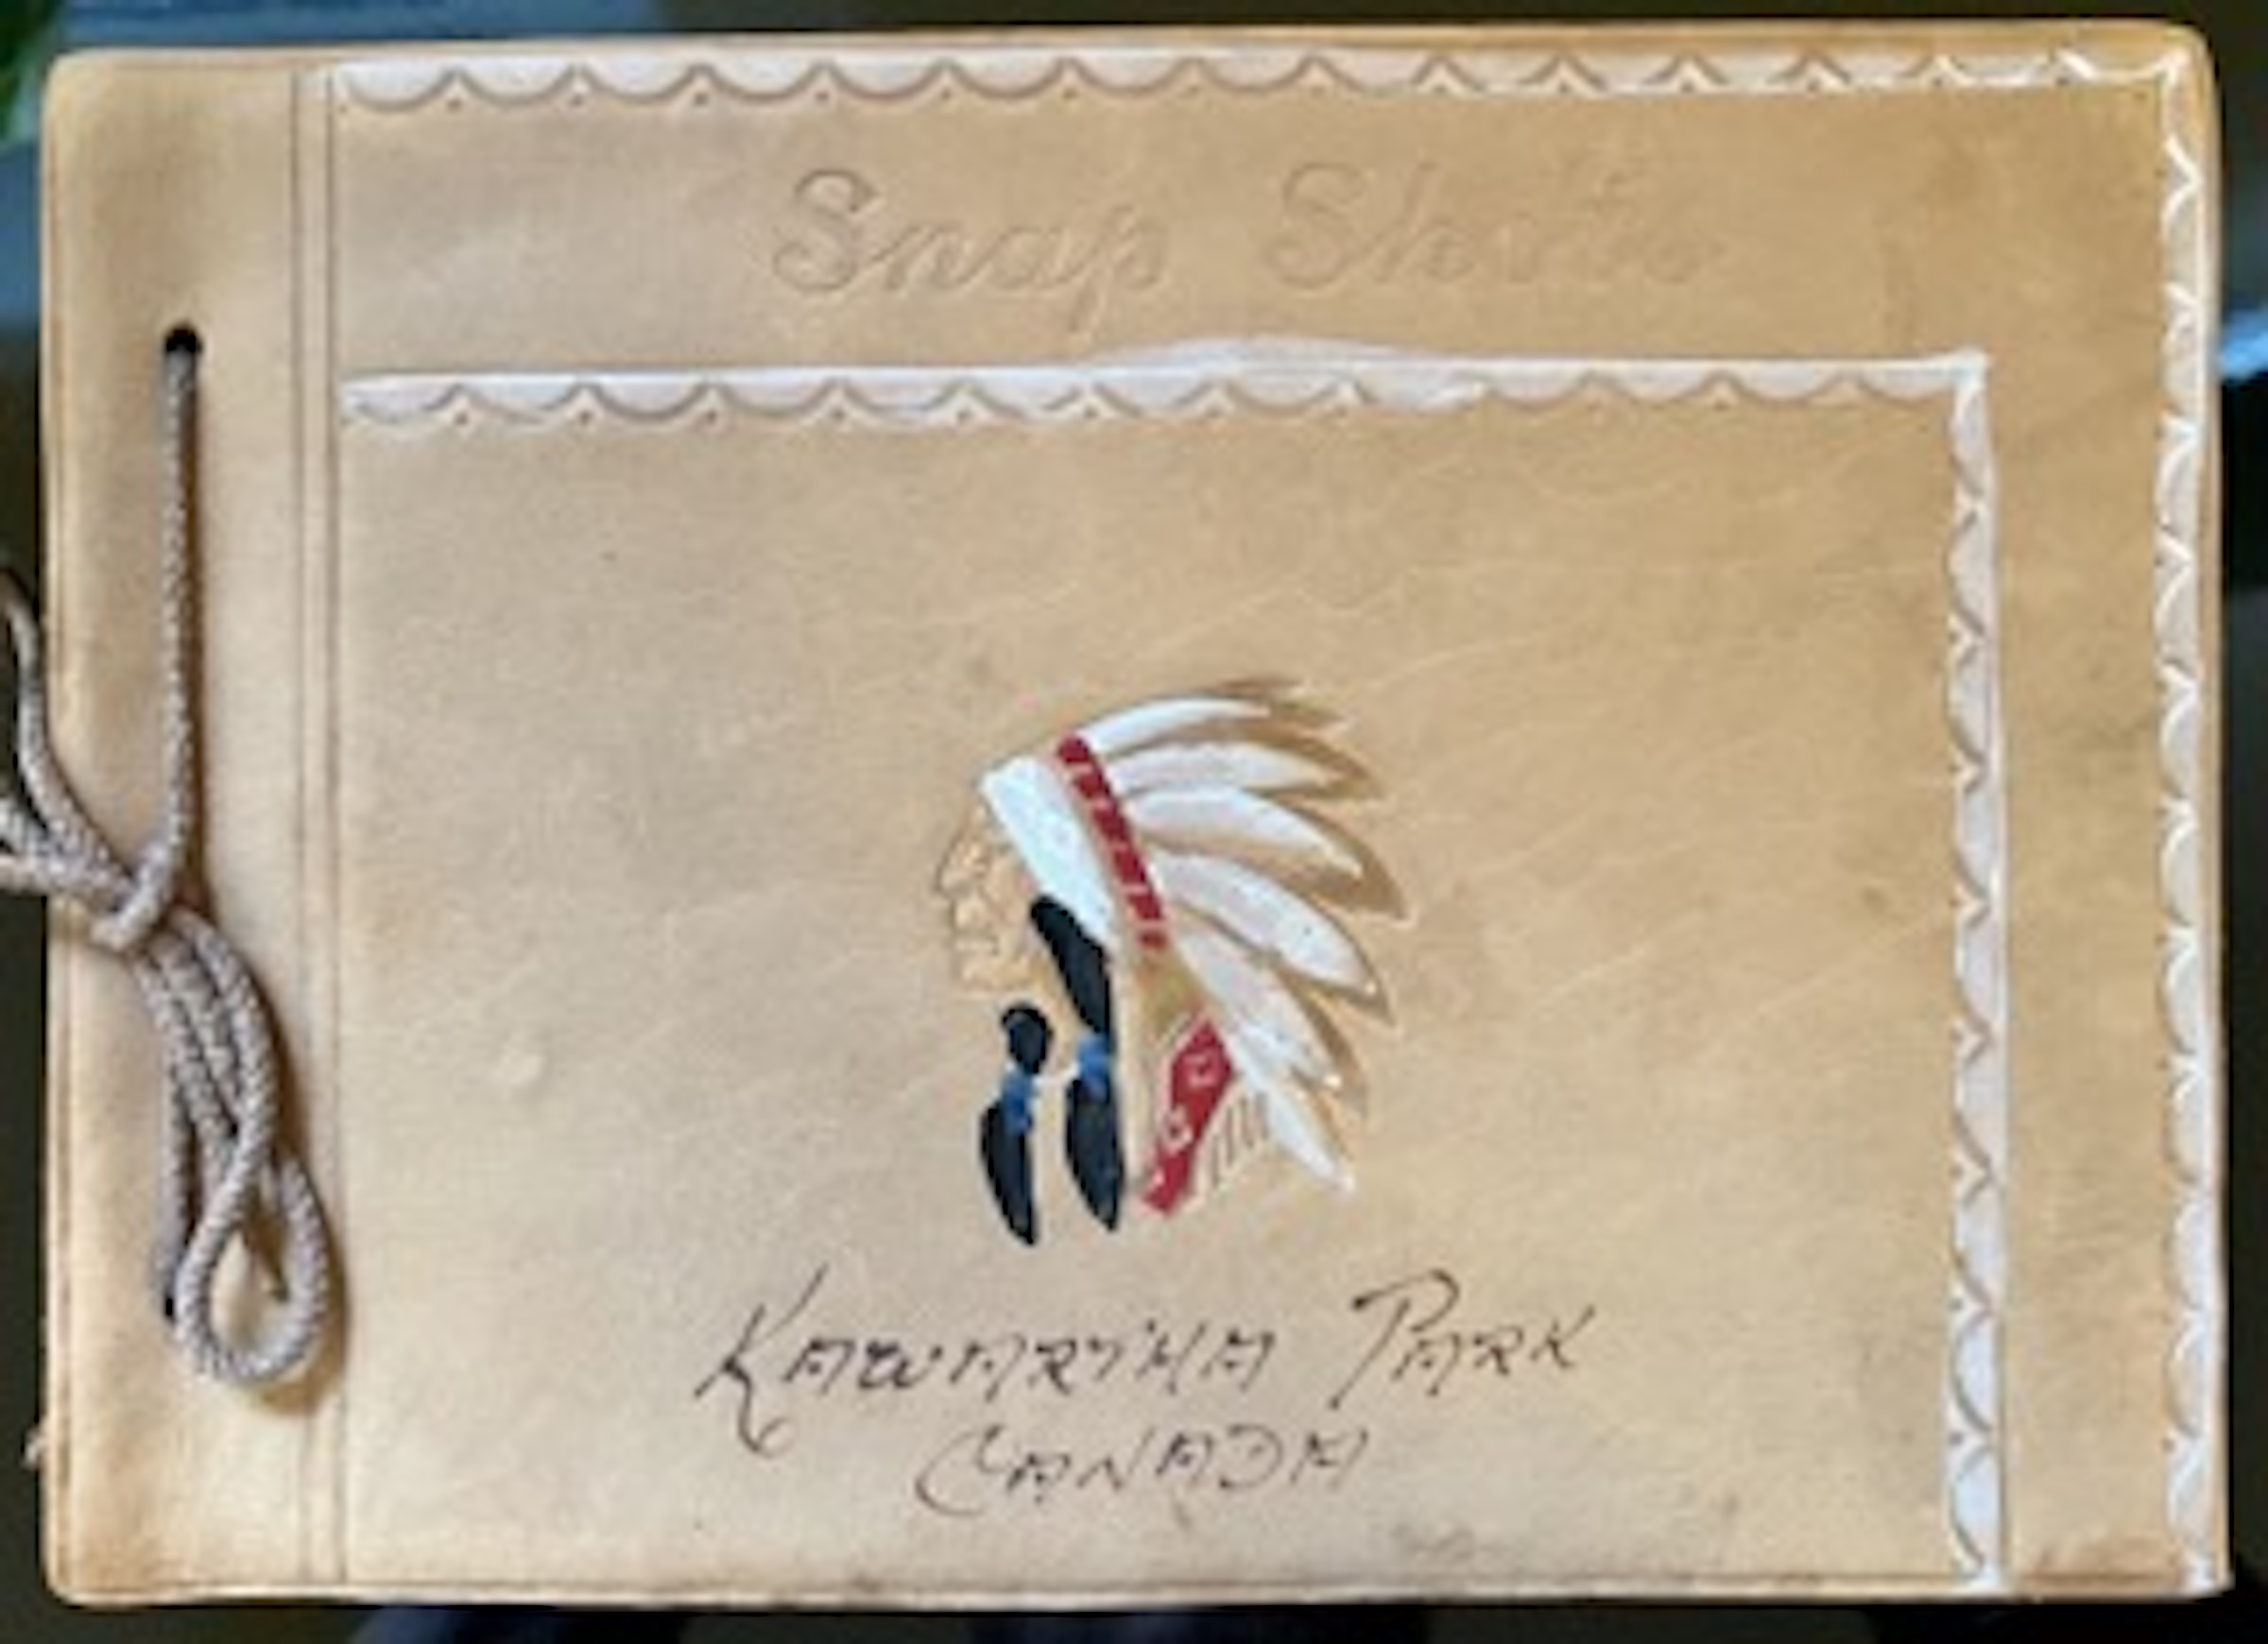 Snap Shots
KAWARTHA PARK
CANADA